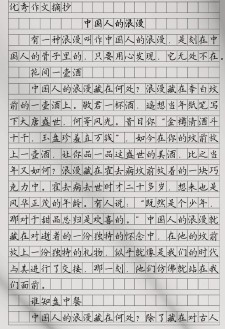 优秀作文摘抄
中国人的浪漫
有一种浪漫叫作中国人的浪漫,是刻在中
国人的骨子里的,只要用心发现,它无处不在。
花间一壶酒
中国人的浪漫藏在何处?浪漫藏在李白坟
前的一壶酒上。敬君一杯酒,遥想当年纸笔写
下大唐盛世,何等风光。昔日你“金樽清酒斗
十千,玉盘珍羞直万钱”,如今在你的坟前放
上一壶酒,让你品一品这盛世的美酒,比之当
年又如何?浪漫藏在霍去病坟前放着的一块巧
克力中。霍去病去世时才二十多岁,想来也是
风华正茂的年龄。有人说:“既然是个少年,
那对于甜品总归是欢喜的。”中国人的浪漫就
藏在对逝者的一份独特的怀念中,在他的坟前
放上一份独特的礼物,似乎就像是我们的时代
与其进行了交接,那一刻,他们仿佛就站在我
们面前。
谁知盘中餐
中国人的浪漫藏在何处?除了藏在对古人